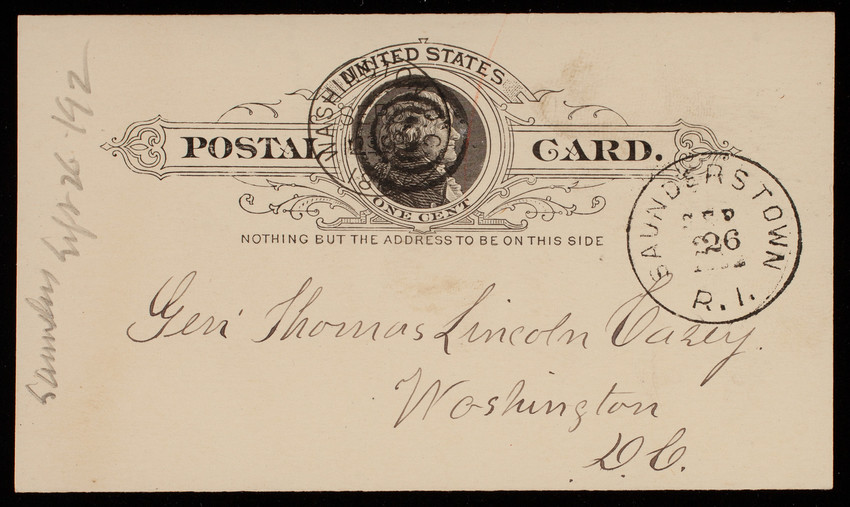 UNITED STATES
POSTAL CARD.
ONE CENT
NOTHING BUT THE ADDRESS TO BE ON THIS SIDE
WASHINGTON
SAUNDERSTOWN
SEP
26
R.I.
Gen Thomas Lincoln Casey.
Washington
D.C.
Saunders Sept 26 192